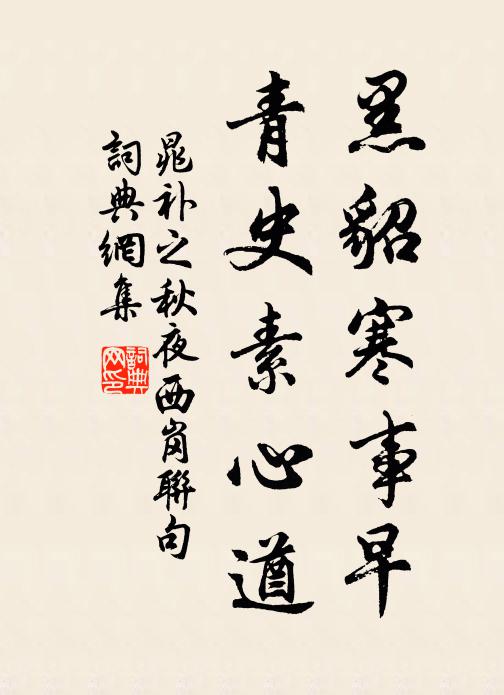 黑貂寒事早
青史素心遒
晁补之秋夜西岗聯句
詞典網集
詞典网印